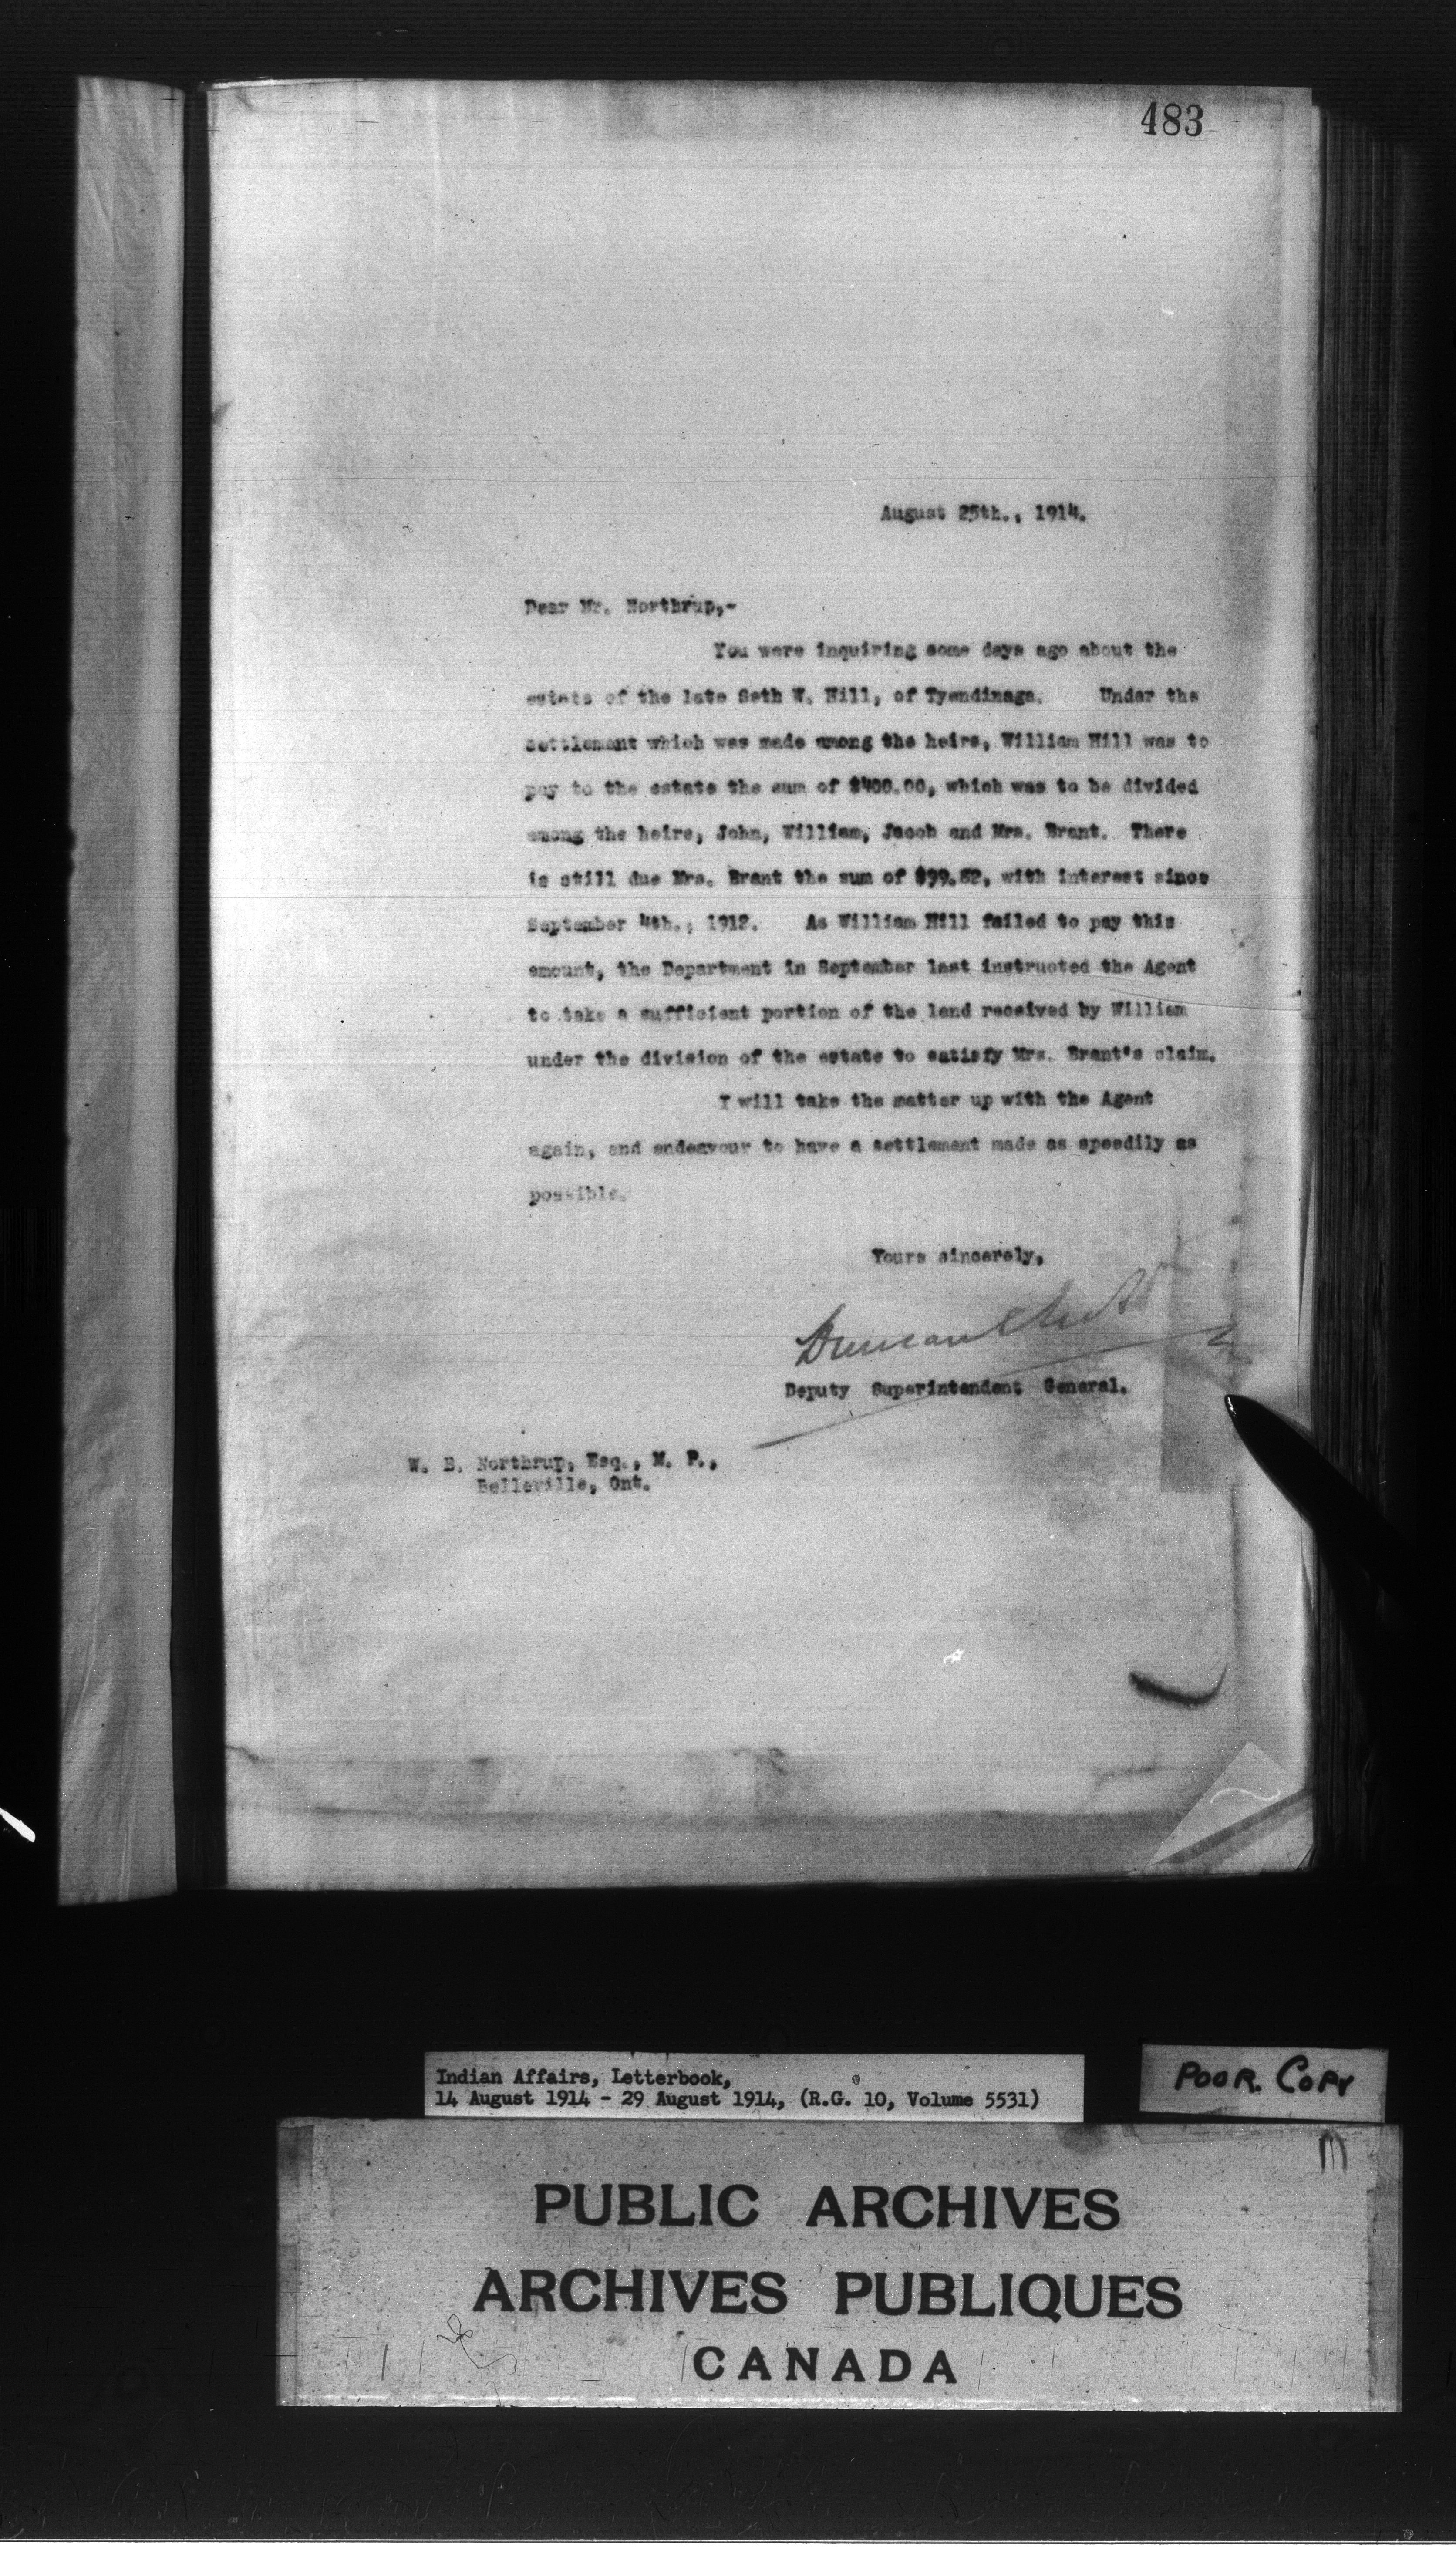 483
August 25th., 1914.
Dear Mr. Northrup,-
You were inquiring some days ago about the
estate of the late Seth W. Hill, of Tyendinaga. Under the
settlement which was made among the heirs, William Hill was to
pay to the estate the sum of $400.00, which was to be divided
among the heirs, John, William, Jacob and Mrs. Brant. There
is still due Mrs. Brant the sum of $99.82, with interest since
September 4th., 1912. As William Hill failed to pay this
amount, the Department in September last instructed the Agent
to take a sufficient portion of the land received by William
under the division of the estate to satisfy Mrs. Brant's claim.
I will take the matter up with the Agent
again, and endeavour to have a settlement made as speedily as
possible.
Yours sincerely,
Duncan
Deputy Superintendent General.
W. B. Northrup, Esq., M. P.,
Belleville, Ont.
Indian Affairs, Letterbook,
14 August 1914 - 29 August 1914, (R.G. 10, Volume 5531)
POOR. COPY
PUBLIC ARCHIVES
ARCHIVES PUBLIQUES
CANADA